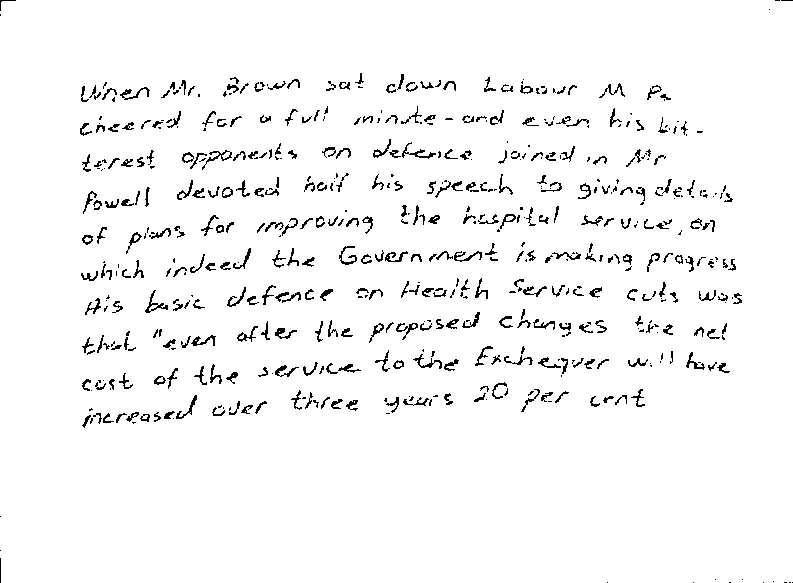 When Mr. Brown sat down Labour M Ps
cheered for a full minute - and even his bit-
terest opponents on defence joined in Mr
Powell devoted half his speech to giving details
of plans for improving the hospital service, on
which indeed the Government is making progress
His basic defence on Health Service cuts was
that "even after the proposed changes the net
cost of the service to the Exchequer will have
increased over three years 20 per cent